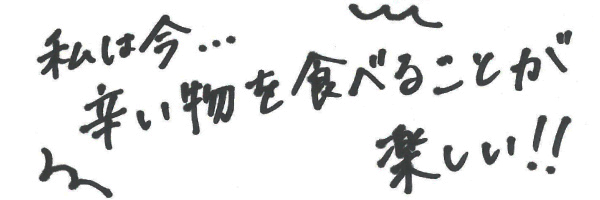 私は今…
辛い物を食べることが
楽しい!!